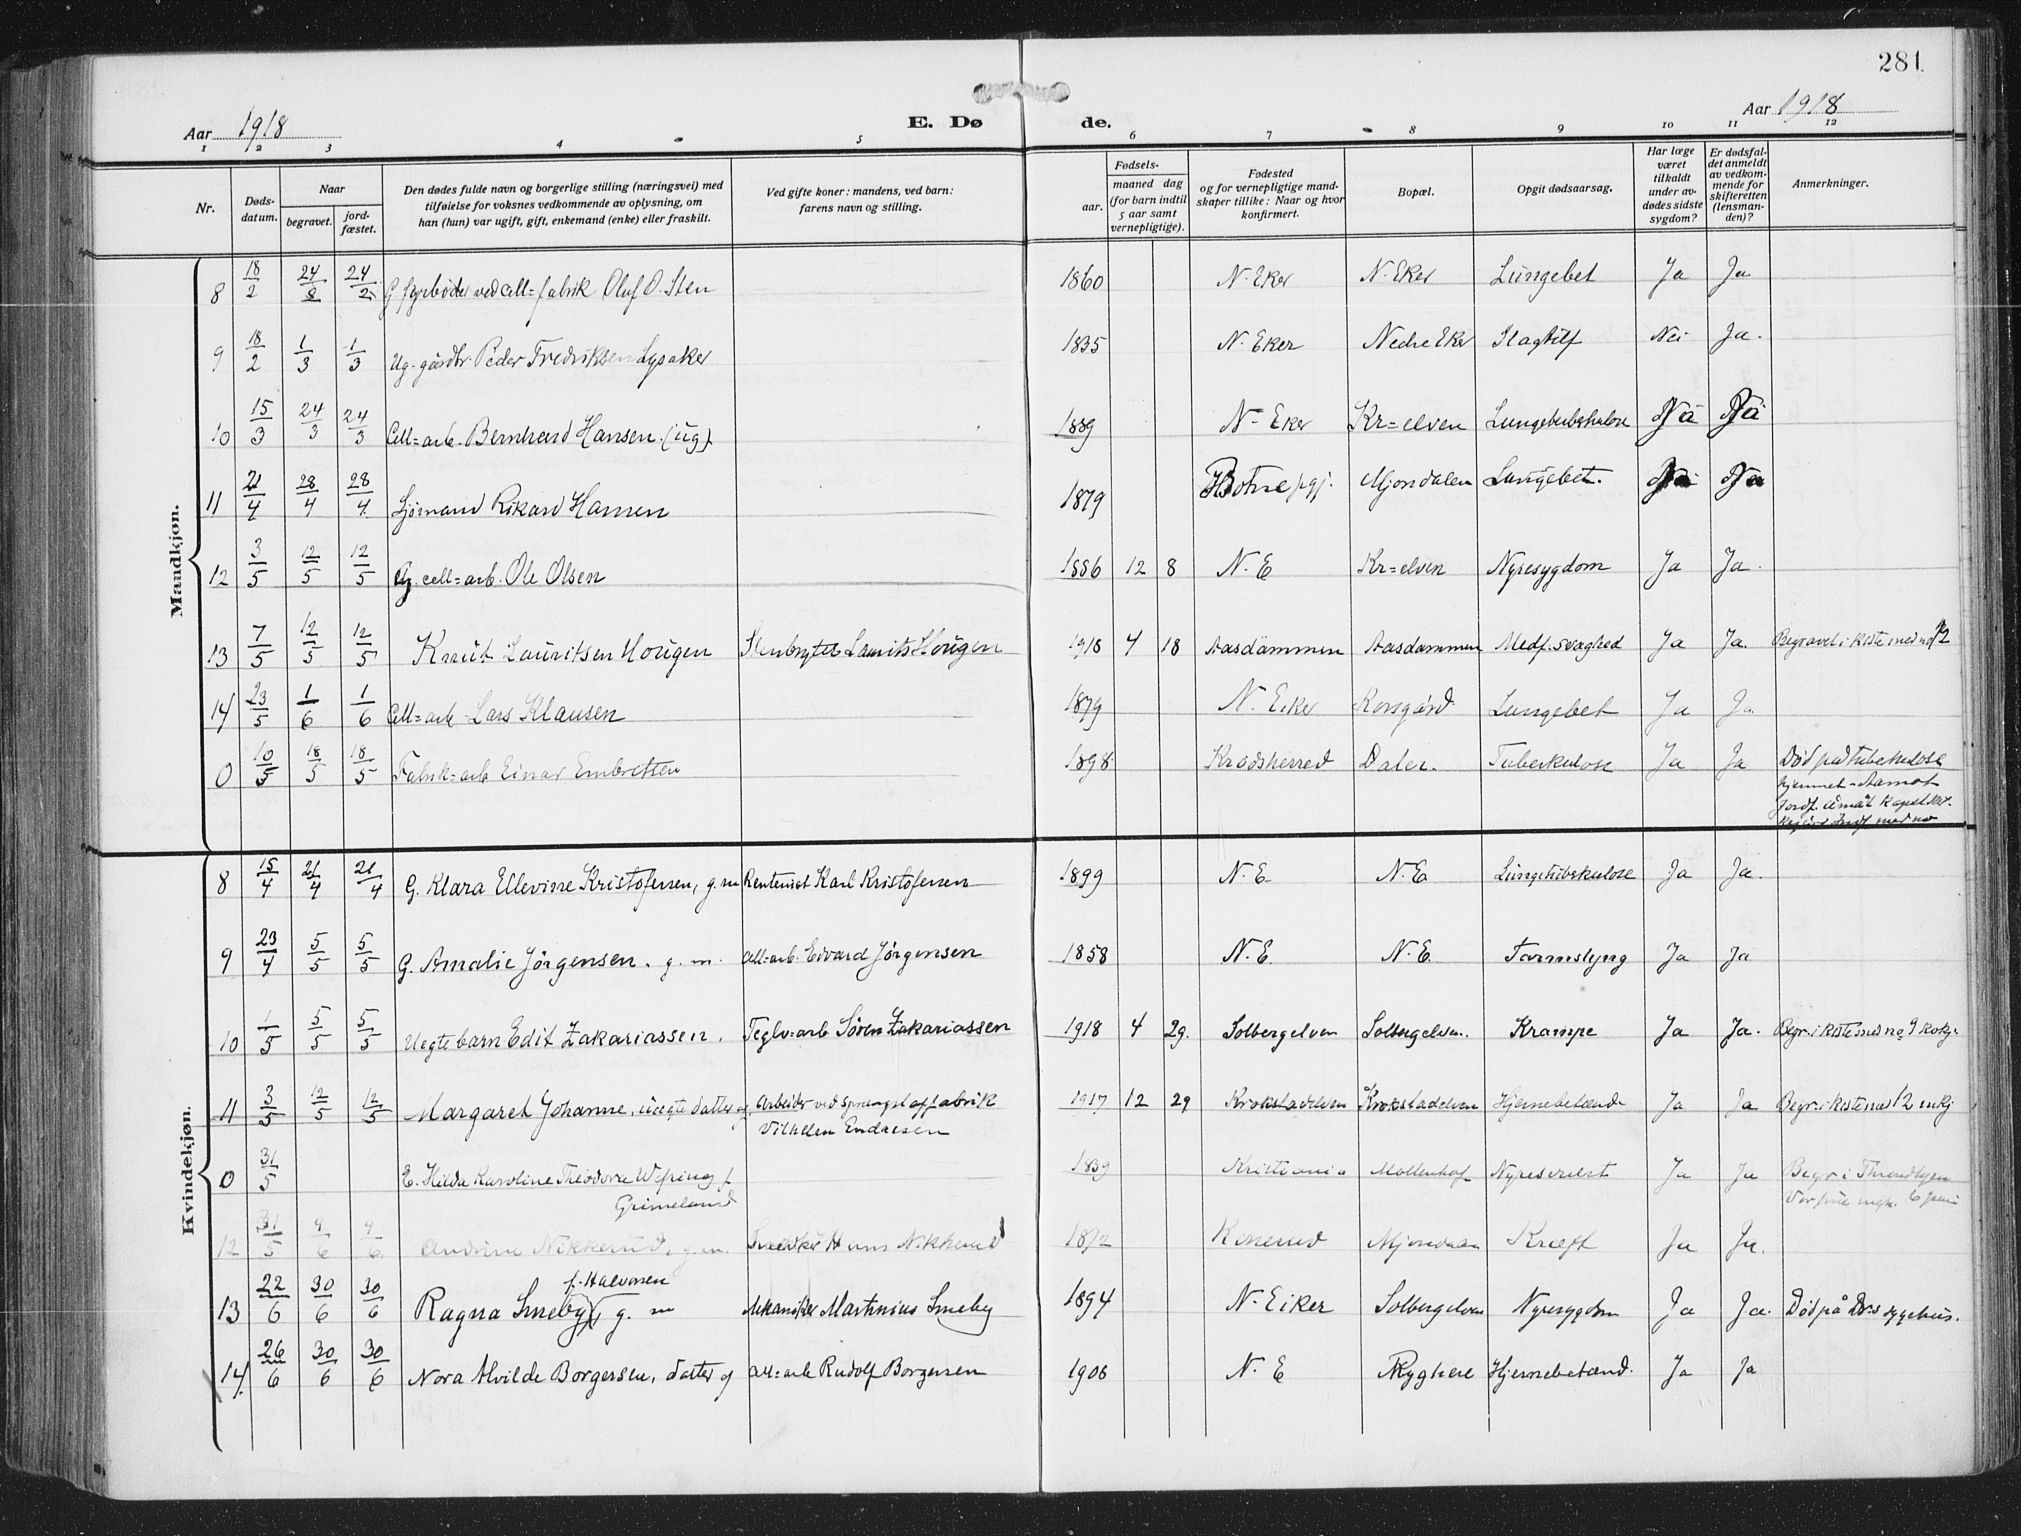 281
Aar 1918
E. Dø
de.
Aar 1918
1 2 3 4 5 6 7 8 9 10 11 12
Nr.
Døds-
datum.
Naar
begravet.
jord-
fæstet.
Den dødes fulde navn og borgerlige stilling (næringsvei) med
tilføielse for voksnes vedkommende av oplysning, om
han (hun) var ugift, gift, enkemand (enke) eller fraskilt.
Ved gifte koner: mandens, ved barn:
farens navn og stilling.
Fødsels-
aar.
maaned dag
(for barn indtil
5 aar samt
vernepligtige).
Fødested
og for vernepligtige mand-
skaper tillike: Naar og hvor
konfirmert.
Bopæl.
Opgit dødsaarsag.
Har læge
været
tilkaldt
under av-
dødes sidste
sygdom?
Er dødsfal-
det anmeldt
av vedkom-
mende for
skifteretten
(lensman-
den)?
Anmerkninger.
Mandkjøn.
8 18/2 24/2 24/2 G. fyrbøder ved cell=fabrik Oluf O. Sten 1860 N. Eker N. Eker Lungebet Ja Ja
9 18/2 1/3 1/3 Ug. gårdbr. Peder Fredriksen Lysaker 1835 N. Eker Nedre Eker Slagtilf Nei Ja.
10 15/3 24/3 24/3 Cell=arb. Bernhard Hansen (ug). 1889 N=Eker Kr=elven Lungetuberkulose Ja Ja
11 21/4 28/4 28/4 Sjømand Rikard Hansen 1879 Botne pgj. Mjøndalen Lungebet. Ja Ja
12 3/5 12/5 12/5 Ug. cell=arb. Ole Olsen 1886 12 8 N. E Kr=elven Nyresygdom Ja Ja.
13 7/5 12/5 12/5 Knut Lauritsen Hougen Stenbryter Laurits Hougen 1918 4 18 Aasdammen Aasdammen Medf. svaghed Ja Ja. Begravet i kiste med no 12
14 23/5 1/6 1/6 Cell=arb. Lars Klausen 1879 N. Eiker Korsgård Lungebet Ja Ja
0 10/5 18/5 18/5 Fabrik=arb Einar Embretsen 1898 Krødsherred Daler. Tuberkulose Ja Ja Død på tuberkulose
hjemmet - Aamot
Kvindekjøn.
8 15/4 21/4 21/4 G. Klara Ellevine Kristofersen, g. m Rentenist Karl Kristofersen 1899 N. E. N. E Lungetuberkulose Ja Ja.
9 23/4 5/5 5/5 G. Amalie Jørgensen. g. m. Cell=arb. Edvard Jørgensen 1858 N. E. N. E. Tarmslyng Ja Ja
10 1/5 5/5 5/5 Uegte barn Edit Zakariassen. Teglv=arb Søren Zakariassen 1918 4 29. Solbergelven Solbergelven. Krampe Ja Ja. Begr. i kiste med no 9
11 3/5 12/5 12/5 Margaret Johanne, uegte datter af Arbeider ved sprængstoffabrik
Vilhelm Endresen 1917 12 29 Krokstadelven Krokstadelven Hjernebetænd Ja Ja Begr. i kiste med 12
0 31/5 E. Hilda Karoline Theodora Wefring f.
Grimeland 1839 Kristiania Møllenhof Nyresvulst Ja Ja Begr. i Throndhjem
Vor frue mgh. 6 juni
12 31/5 9/6 9/6 Andrine Nikkerud, g. m. Hans Nikkerud 1872 Konerud Mjøndalen Kræft Ja Ja.
13 22/6 30/6 30/6 Ragna Smeby, f. Halvorsen g. m Mekaniker Martinius Smeby 1894 N. Eiker Solbergelven Nyresygdom Ja Ja. Død på Dr=s sygehus.
14. 26/6 30/6 30/6 Nora Alvilde Borgersen, datter af Cell=arb Rudolf Borgersen 1906 N. E Ryghkol Hjernebetænd. Ja Ja